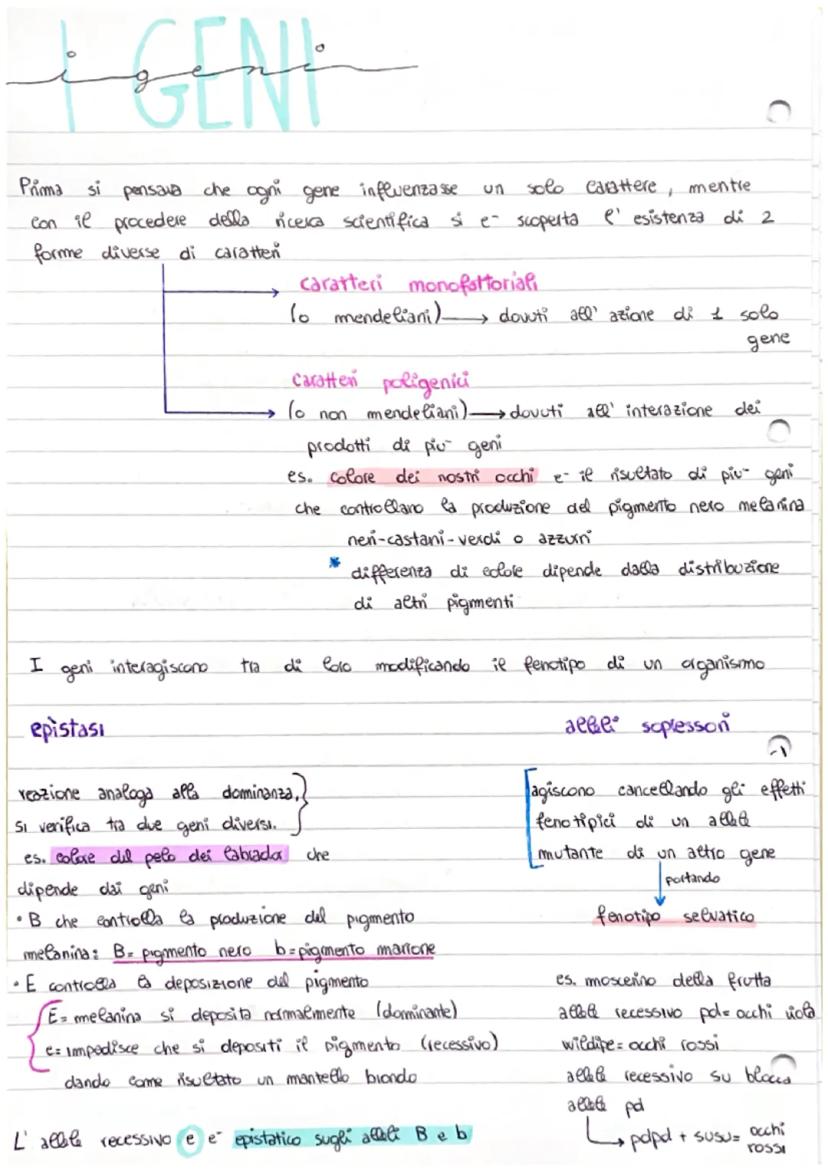 I GENI
i geni
Prima si pensava che ogni gene influenzasse un solo carattere, mentre
con il procedere della ricerca scientifica si e- scoperta l'esistenza di 2
forme diverse di caratteri
caratteri monofattoriali
(o mendeliani) → dovuti all'azione di 1 solo
gene
caratteri poligenici
(o non mendeliani) → dovuti all'interazione dei
prodotti di piu- geni
es. colore dei nostri occhi e- il risultato di piu- geni
che controllano la produzione del pigmento nero melanina
neri-castani-verdi o azzurri
* differenza di colore dipende dalla distribuzione
di altri pigmenti
I geni interagiscono tra di loro modificando il fenotipo di un organismo
epistasi
reazione analoga alla dominanza,
si verifica tra due geni diversi.
es. colore del pelo dei labrador che
dipende dai geni
• B che controlla la produzione del pigmento
melanina: B= pigmento nero b=pigmento marrone
• E controlla la deposizione del pigmento
E= melanina si deposita normalmente (dominante)
e= impedisce che si depositi il pigmento (recessivo)
dando come risultato un mantello biondo
L'allele recessivo e e- epistatico sugli alleli B e b
alleli sopressori
agiscono cancellando gli effetti
fenotipici di un allele
mutante di un altro gene
portando
fenotipo selvatico
es. moscerino della frutta
allele recessivo pd= occhi viola
wildipe= occhi rossi
allele recessivo su blocca
allele pd
→ pdpd + susu= occhi
rossi